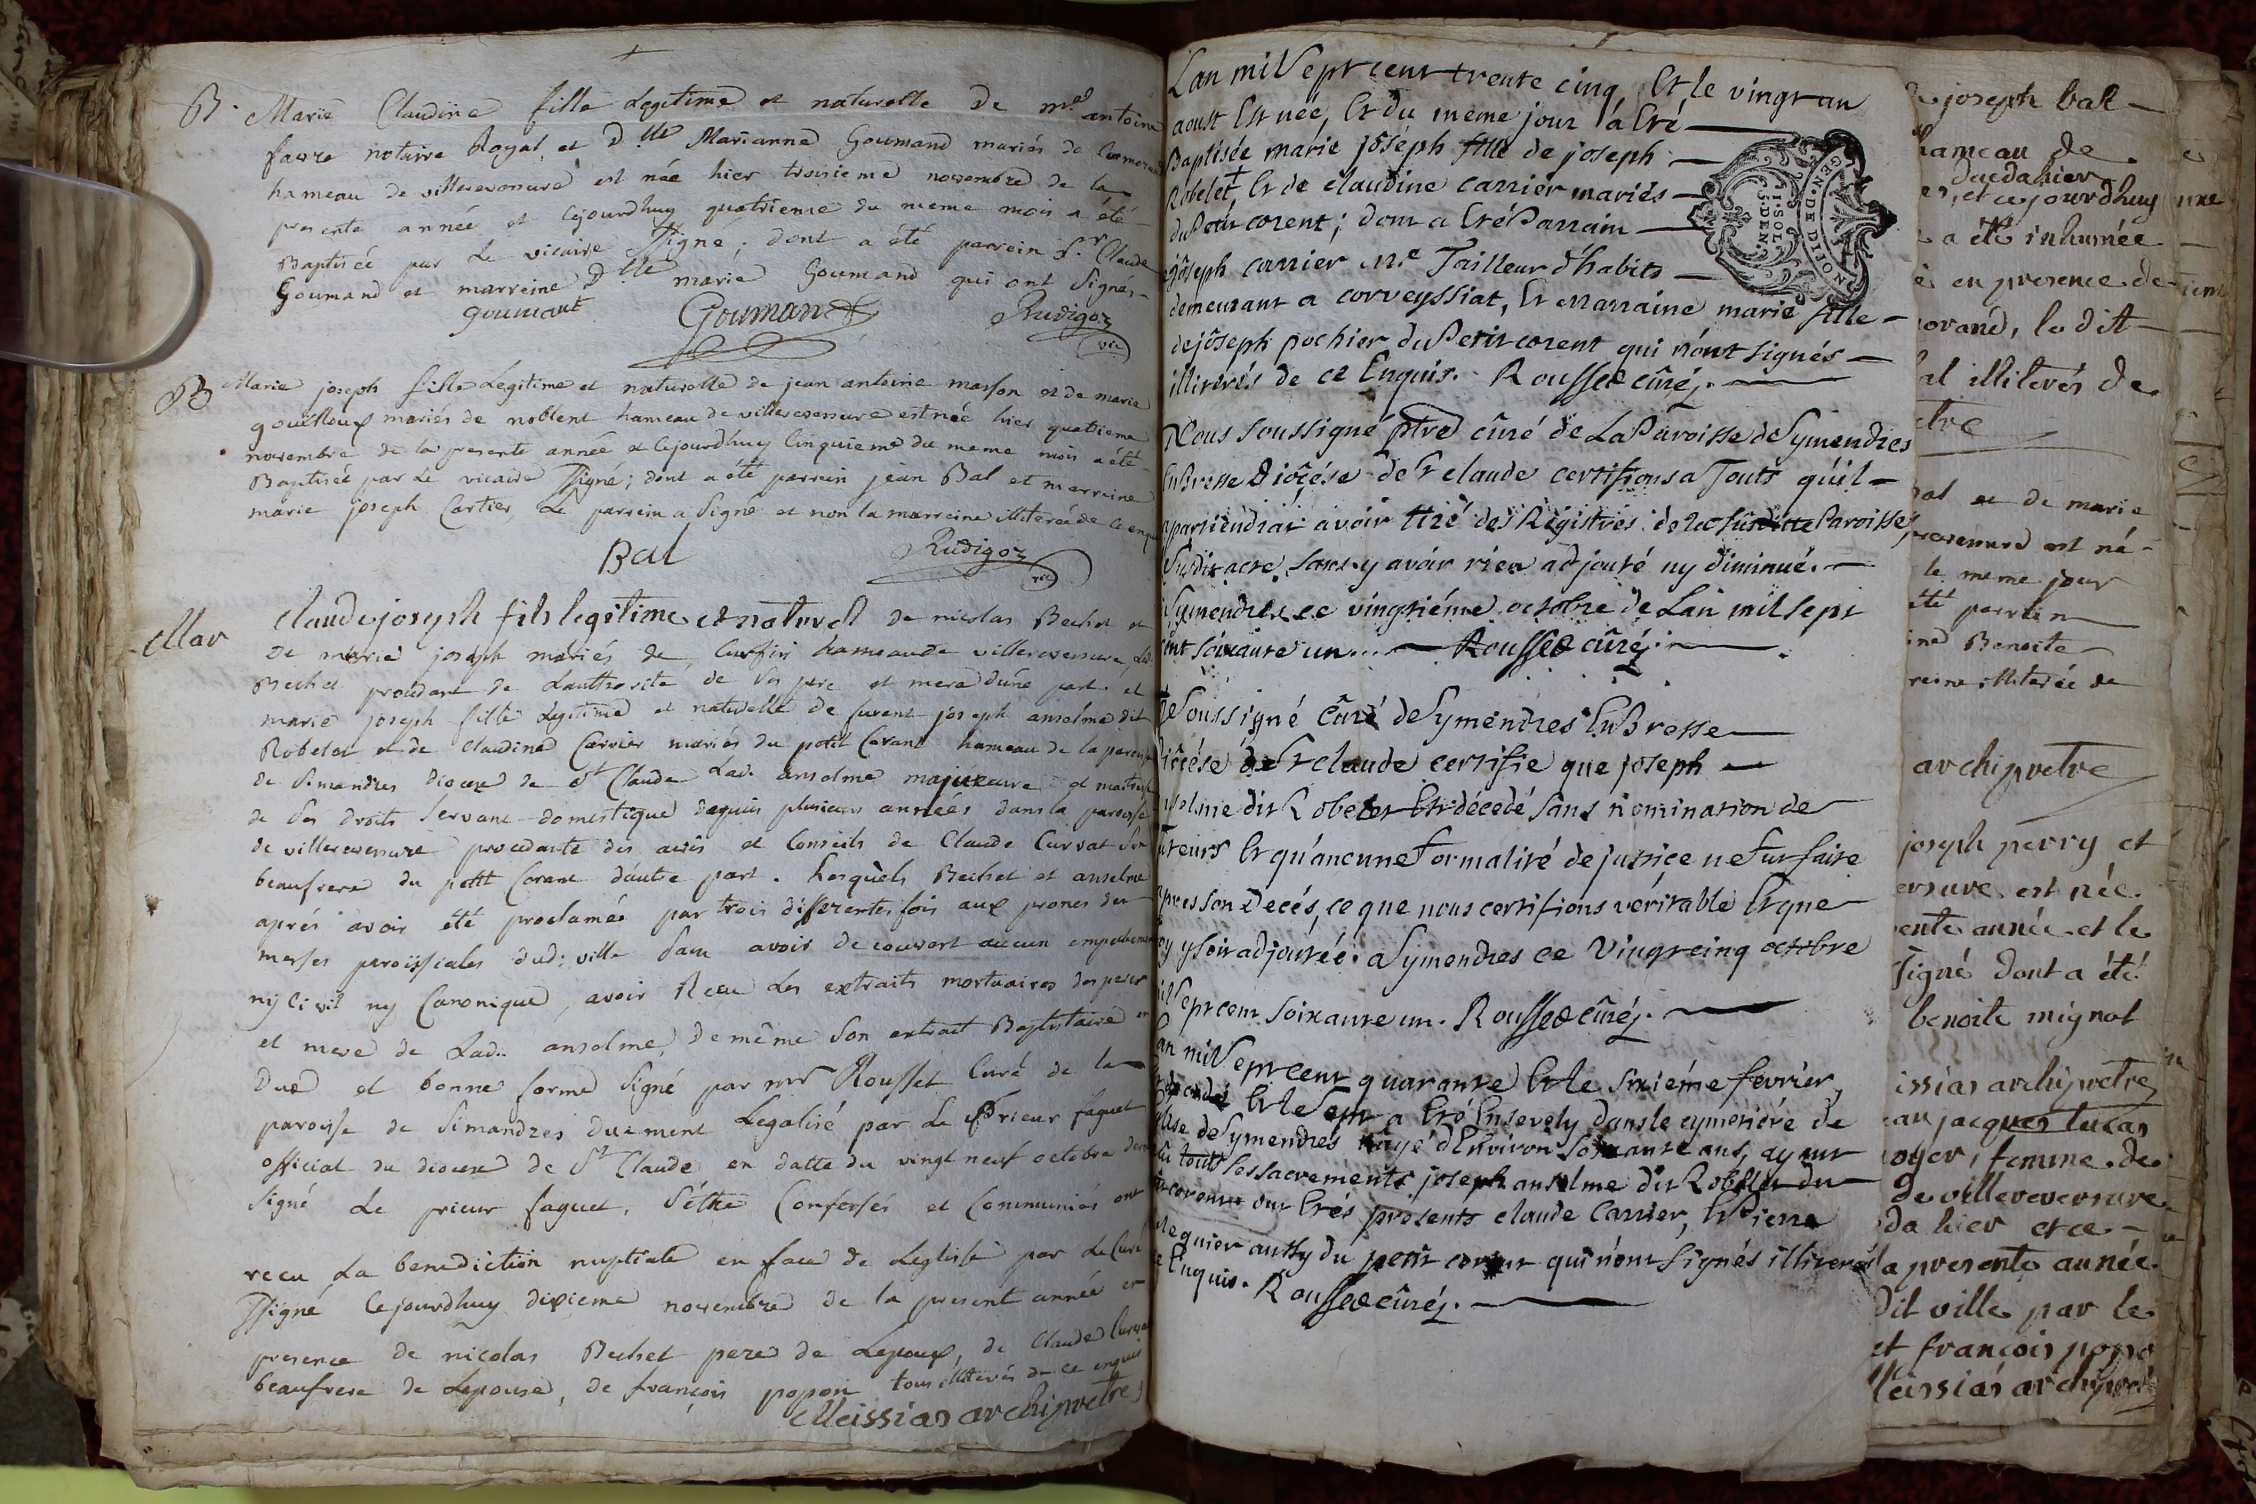 B. Marie Claudine fille Legitime et naturelle De me antoine
favre notaire Royal et Dlle Marianne Goumand mariés de
hameau de villereversure est née hier troisieme novembre de la
presente année et Cejourdhuy quatrieme du meme mois a été
Baptisée par Le vicaire ssigné; dont a été parrein Sr Claude
Goumand et marreine Dlle marie Goumand qui ont Signés
goumant Goumand Rudigoz vic
B Marie joseph fille Légitime et naturelle de jean antoine masson et de marie
gouilloux mariés de noblent hameau de villereversure est née hier quatrieme
novembre de la presente année et Cejourdhuy Cinquieme du meme mois a été
Baptisée par Le vicaire ssigné; dont a été parrein jean Bal et marreine
marie joseph Cartier Le parrein a Signé et non la marreine illiterée de ce enquis
Bal Rudigoz vic
Mar Claude joseph fils legitime et naturel de nicolas Bechet et
de marie joseph mariés de Curfin hameau de villereversure, Led.
Bechet procedant de Lauthorite de ses pere et mere dune part. et
marie joseph fille Legitime et naturelle de furent joseph anselme dit
Robelet et de Claudine Carrier mariés du petit Corant hameau de la paroisse
de Simandres diocese de St Claude Lad. anselme majeure et maitresse
de ses droits Servante domestique depuis plusieurs années dans la paroisse
de villereversure procedante des avis et Conseils de Claude Curvat Son
beaufrere du petit Corant d'autre part. Lesquels Bechet et anselme
aprés avoir été proclamés par trois differentes fois aux prones des
messes paroissiales dud: ville sans avoir decouvert aucun empechement
ny Civil ny Canonique, avoir Recu Les extraits mortuaires des pere
et mere de Lad.. anselme, de même Son extrait Baptistaire en
due et bonne forme Signé par mr Rousset Curé de la
paroisse de Simandres duement Legalisé par Le Prieur faguet
official du diocese de St Claude en datte du vingt neuf octobre dernier
Signé Le prieur faguet, s'étre Confessés et Communiés ont
recu La benediction nuptiale en face de Leglise par Le Curé
ssigné Cejourdhuy dixieme novembre de la present année en
presence de nicolas Bechet pere de Lepoux, de Claude Curvat
beaufrere de Lepouse, de françois popon tous illiterés de ce enquis
Meissias archipretre
Lan mil Sept cent trente cinq Et le vingt un
aoust Est née, Et du meme jour a Eté
Baptisée marie joséph fille de joseph
Robelet Et de claudine carrier mariés
du Petit corent; dont a Eté Parrain
joseph carrier Me Tailleur d'habits
demeurant a corveyssiat, Et Marraine marie fille
de joseph pochier du Petit corent qui n'ont signés
illiterés de ce Enquis. Rousset curé.
GEN. DE DIJON
1. SOL. 5. DEN.
Nous soussigné ptre curé de La Paroisse de Symendres
En Bresse Diocése de St claude certifions a Touts qu'il
apartiendrat avoir tiré des Régistres de la susditte Paroisse,
Susdit acte, sans y avoir rien adjouté ny diminué.
Symendres ce vingtiéme octobre de Lan mil sept
cent soixante un... Rousset curé.
Je soussigné Curé de Symendres En Bresse
diocésé de St claude certifie que joseph
anselme dit Robelet Est décedé sans nomination de
tuteurs Et qu'aucune Formalité de justice ne fut faite
apres son Decés, ce que nous certifions véritable Et que
foy y soit adjoutée. a Symendres ce Vingt cinq octobre
mil Sept cent soixante un. Rousset curé.
Lan mil Sept cent quarante Et le sixiéme fevrier
Est decedé Et le Sept a Eté Ensevely dans le cymetiére de
de Symendres agé d'Environ Soixante ans, ayant
touts les sacrements joseph anselme dit Robellet du
corent ont Etés presents claude Carrier, Et Pierre
du petit corent qui n'ont signés illiterés
Enquis. Rousset curé.
joseph bal
hameau de
duedahier
et cejourdhuy
a été inhumée
en presence de
le dit
al illiterés de
bal et de marie
est né
le meme jour
été parrein
Benoite
illiterée de
archipretre
joseph perry et
est née
année et le
signé dont a été
benoite mignot
archipretre
jacques lucas
femme de
de villereversure
hier et ce
la presente année
dit ville par le
et françois popon
Meissias archipretre